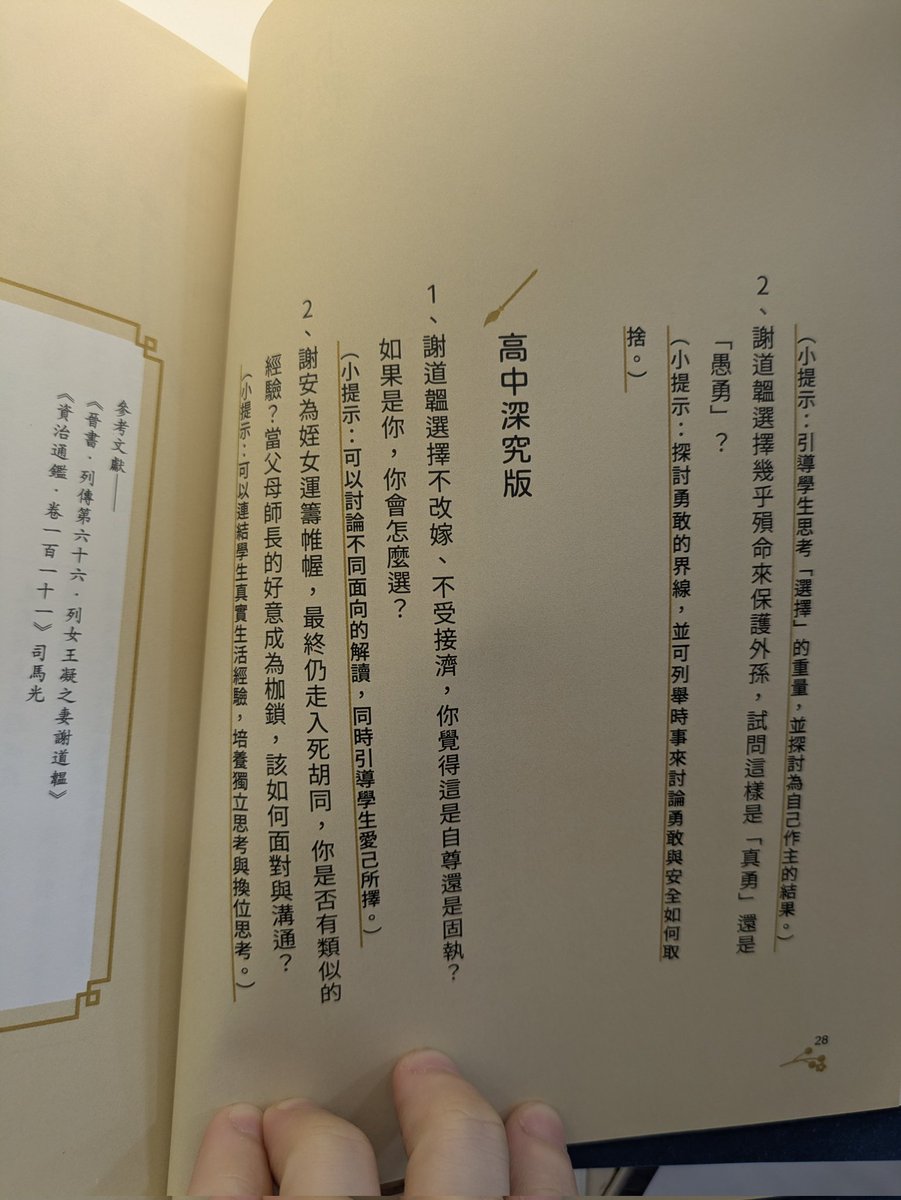 (小提示：引導學生思考「選擇」的重量，並探討為自己作主的結果。)
2、謝道韞選擇幾乎殞命來保護外孫，試問這樣是「真勇」還是
「愚勇」？
(小提示：探討勇敢的界線，並可列舉時事來討論勇敢與安全如何取
捨。)
高中深究版
1、謝道韞選擇不改嫁、不受接濟，你覺得這是自尊還是固執？
如果是你，你會怎麼選？
(小提示：可以討論不同面向的解讀，同時引導學生愛己所擇。)
2、謝安為姪女運籌帷幄，最終仍走入死胡同，你是否有類似的
經驗？當父母師長的好意成為枷鎖，該如何面對與溝通？
(小提示：可以連結學生真實生活經驗，培養獨立思考與換位思考。)
28
參考文獻——
《晉書．列傳第六十六．列女王凝之妻謝道韞》
《資治通鑑．卷一百一十一》司馬光